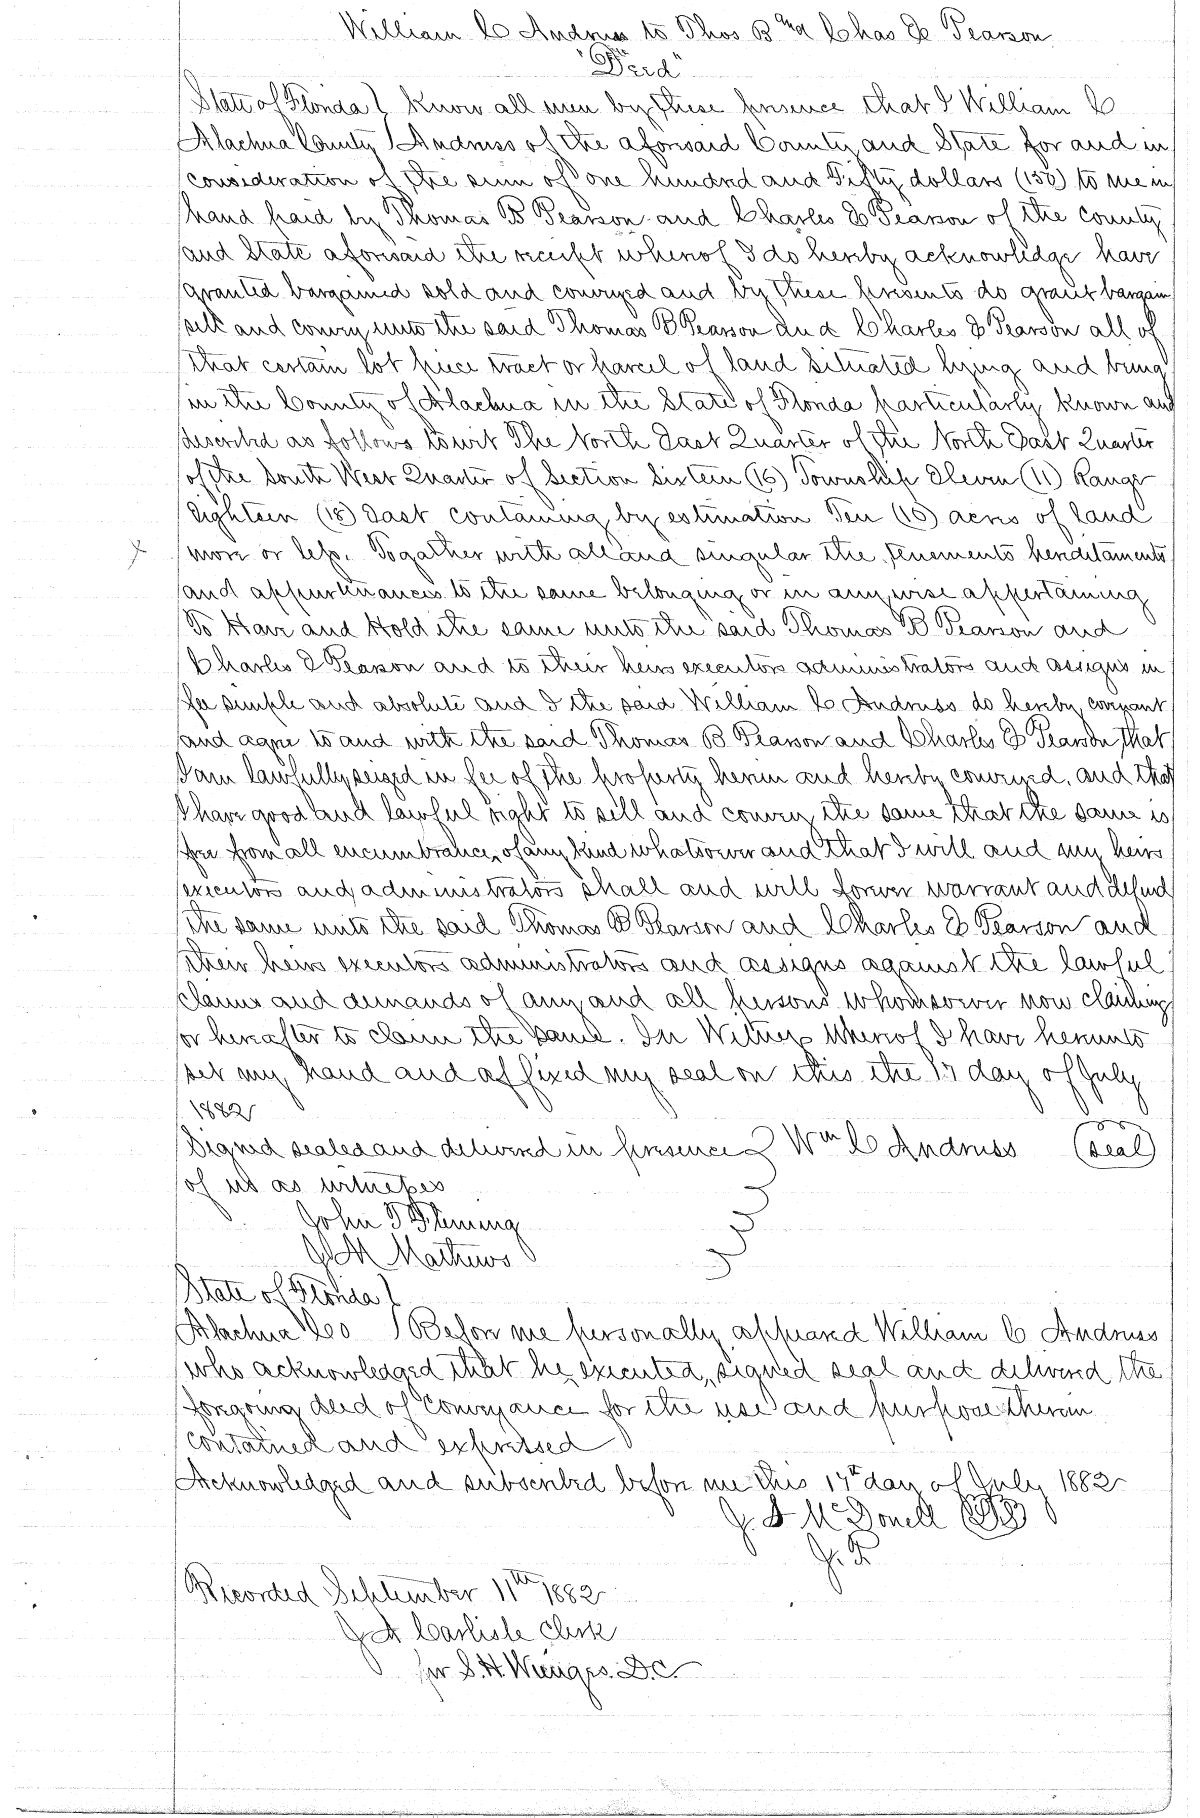 William C Andruss to Thos B and Chas E Pearson
"Deed"
State of Florida } Know all men by these presence that I William C
Alachua County } Andruss of the aforesaid County and State for and in
consideration of the sum of one hundred and Fifty dollars (150) to me in
hand paid by Thomas B Pearson and Charles E Pearson of the county
and State aforesaid the receipt whereof I do hereby acknowledge have
granted bargained sold and conveyed and by these presents do grant bargain
sell and convey unto the said Thomas B Pearson and Charles E Pearson all of
that certain lot piece tract or parcel of land situated lying and being
in the County of Alachua in the State of Florida particularly known and
described as follows towit The North East Quarter of the North East Quarter
of the South West Quarter of Section Sixteen (16) Township Eleven (11) Range
Eighteen (18) East containing by estimation Ten (10) acres of land
x more or less. Togather with all and singular the tenements hereditaments
and appurtinances to the same belonging or in anywise appertaining
To Have and Hold the same unto the said Thomas B Pearson and
Charles E Pearson and to their heirs executors administrators and assigns in
fee simple and absolute and I the said William C Andruss do hereby covenant
and agree to and with the said Thomas B Pearson and Charles E Pearson that
I am lawfully seized in fee of the property herein and hereby conveyed, and that
I have good and lawful right to sell and convey the same that the same is
free from all encumbrances of any kind whatsoever and that I will and my heirs
executors and administrators shall and will forever warrant and defend
the same unto the said Thomas B Pearson and Charles E Pearson and
their heirs executors administrators and assigns against the lawful
claims and demands of any and all persons whomsoever now claiming
or hereafter to claim the same. In Witness Whereof I have hereunto
set my hand and affixed my seal on this the 17 day of July
1882
Signed sealed and delivered in presence } Wm C Andruss (seal)
of us as witnesses
John T Fleming
J M Mathews
State of Florida }
Alachua Co } Before me personally appeared William C Andruss
who acknowledged that he executed, signed seal and delivered the
foregoing deed of conveyance for the use and purpose therein
contained and expressed
Acknowledged and subscribed before me this 17th day of July 1882
J. S McDonell
J. P.
Recorded September 11th 1882
J A Carlisle Clerk
for S. H. Wienges. D.C.